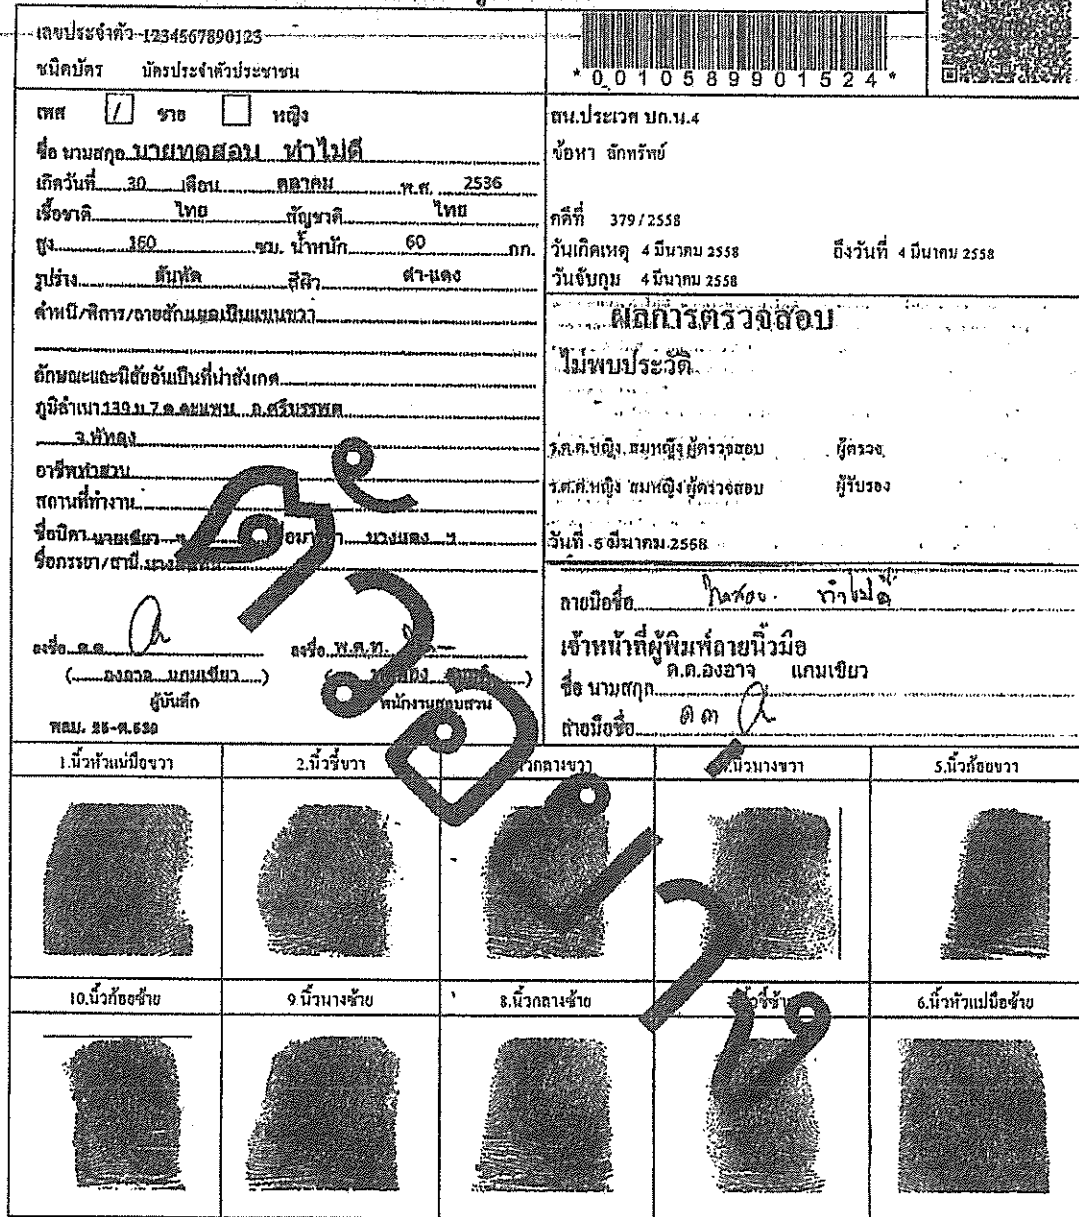 เลขประจำตัว 1234567890123
ชนิดบัตร บัตรประจำตัวประชาชน
*0010589901524*
เพศ [/] ชาย [ ] หญิง
ชื่อ นามสกุล นายทดสอบ ทำไม่ดี
เกิดวันที่ 30 เดือน ตุลาคม พ.ศ. 2536
เชื้อชาติ ไทย สัญชาติ ไทย
สูง 160 ซม. น้ำหนัก 60 กก.
รูปร่าง สันทัด สีผิว ดำ-แดง
ตำหนิ/พิการ/ลายสัก แผลเป็นแขนขวา
ลักษณะและนิสัยอันเป็นที่น่าสังเกต
ภูมิลำเนา 139 ม.7 ต.ตะแพน อ.ศรีบรรพต
จ.พัทลุง
อาชีพ ทำสวน
สถานที่ทำงาน
ชื่อบิดา นายเขียว นางแดง ฯ
ชื่อภรรยา/สามี
ลงชื่อ ด.ต. ลงชื่อ พ.ต.ท.
(องอาจ แกมเขียว)
ผู้บันทึก พนักงานสอบสวน
พลม. 25-ต.530
สน.ประเวศ บก.น.4
ข้อหา ลักทรัพย์
คดีที่ 379/2558
วันเกิดเหตุ 4 มีนาคม 2558 ถึงวันที่ 4 มีนาคม 2558
วันจับกุม 4 มีนาคม 2558
ผลการตรวจสอบ
ไม่พบประวัติ
ร.ต.ต.หญิง สมหญิง ผู้ตรวจสอบ ผู้ตรวจ
ร.ต.ต.หญิง สมหญิง ผู้ตรวจสอบ ผู้รับรอง
วันที่ 6 มีนาคม 2558
ลายมือชื่อ ทดสอบ ทำไม่ดี
เจ้าหน้าที่ผู้พิมพ์ลายนิ้วมือ
ชื่อ นามสกุล ด.ต.องอาจ แกมเขียว
ลายมือชื่อ ด.ต.
1.นิ้วหัวแม่มือขวา 2.นิ้วชี้ขวา นิ้วกลางขวา นิ้วนางขวา 5.นิ้วก้อยขวา
10.นิ้วก้อยซ้าย 9.นิ้วนางซ้าย 8.นิ้วกลางซ้าย นิ้วชี้ซ้าย 6.นิ้วหัวแม่มือซ้าย
ตัวอย่าง